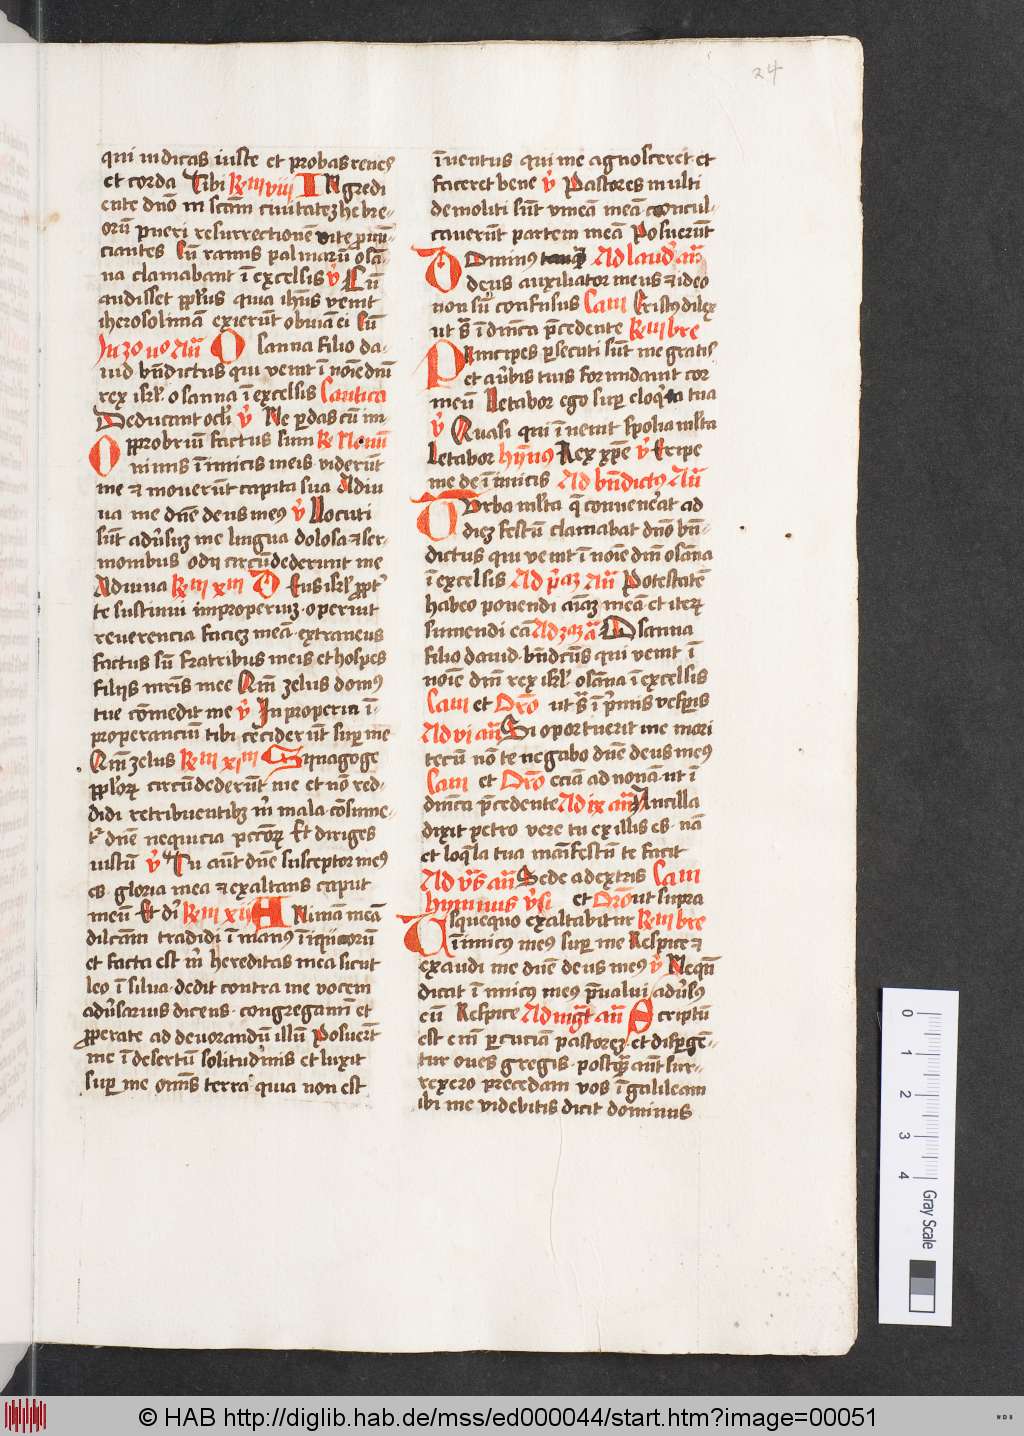 24
qui iudicas iuste et probas renes
et corda Tibi R̄m viij INgredi
ente dn̄o in scām ciuitatez hebre-
orū pueri resurrectionē vite pnū-
ciantes Cū ramis palmarū osā-
na clamabant ī excelsis v̄ Cū
audisset pplus quia ihūs venit
iherosolimā exierūt obuiā ei Cū
In 3o no An̄ Osanna filio da-
uid bn̄dictus qui venit ī noīe dnī
rex isrl o sanna ī excelsis Cantica
Deducant ocl'i v̄ Ne perdas cū im
Opprobriū factus sum R̄ Nonū
nimis ī inimicis meis viderūt
me et mouerūt capita sua Adiu
ua me dn̄e deus meus v̄ Locuti
sūt aduersuz me lingua dolosa et ser-
monibus odii circūdederunt me
Adiuua R̄m xiii Deus isrl ppt
te sustinui improperiuz operuit
reuerencia faciez meā extraneus
factus sū fratribus meis et hospes
filiis mr̄is mee Qm̄ zelus domus
tue cōmedit me v̄ Inproperia ī-
properancium tibi ceciderūt super me
Qm̄ zelus R̄m xiiii Sinagoge
pplor circūdederūt me et nō red-
didi retribuentibus m̄ mala cōsume-
t dn̄e nequicia pctōr Et diriges
iustū v̄ Tu aūt dn̄e susceptor meus
es gloria mea et exaltans caput
meū Et di R̄m xii ANimam meā
dilcām tradidi ī manus īiquorū
et facta est m̄ hereditas mea sicut
leo ī silua dedit contra me vocem
aduersarius dicens congregamī et
properate ad deuorandū illū Posuerūt
me ī desertū solitudinis et luxit
super me omīs terra quia non est
īuentus qui me agnosceret et
faceret bene v̄ Pastores multi
demoliti sūt vineā meā concul-
cauerūt partem meā Posuerūt
Dominus tanq Ad laud' an̄
deus auxiliator meus et ideo
non sū confusus Cam Cristus dilex
ut s ī dnica precedente R̄m bre
Principes persecuti sūt me gratis
et a verbis tuis formidauit cor
meū Letabor ego super eloquia tua
v̄ Quasi qui īuenit spolia multa
Letabor hymnus Rex xpe v̄ Eripe
me de īimicis Ad bn̄dictus An̄
Turba multa q conuenerat ad
diez festū clamabat dn̄o bn̄-
dictus qui venit ī noīe dnī osāna
ī excelsis Ad p̄az An̄ Potestatē
habeo ponendi aīaz meā et iterz
sumendi eā Ad 3az a Osanna
filio dauid bn̄dcūs qui venit ī
noīe dnī rex isrl osāna ī excelsis
Cam et Orō ut s ī p̄mis vesperis
Ad vi an̄ Si oportuerit me mori
tecū nō te negabo dn̄e deus meus
Cam et Orō eciā ad nonā ut ī
dnica precedente Ad ix an̄ Ancilla
dixit petro vere tu ex illis es nā
et loqla tua manifestū te facit
Ad vs an̄ Sede a dextris Cam
hymnus vsi et Orō ut supra
Usquequo exaltabitur R̄m bre
īimicus meus super me Respice et
exaudi me dn̄e deus meus v̄ Nequn̄
dicat īimicus meus preualui aduersus
eū Respice Ad mgt an̄ Scriptū
est enī percuciā pastorez et disperge-
tur oues gregis postq aūt sur-
rexero precedam vos ī galileam
ibi me videbitis dicit dominus
0 1 2 3 4
Gray Scale
© HAB http://diglib.hab.de/mss/ed000044/start.htm?image=00051